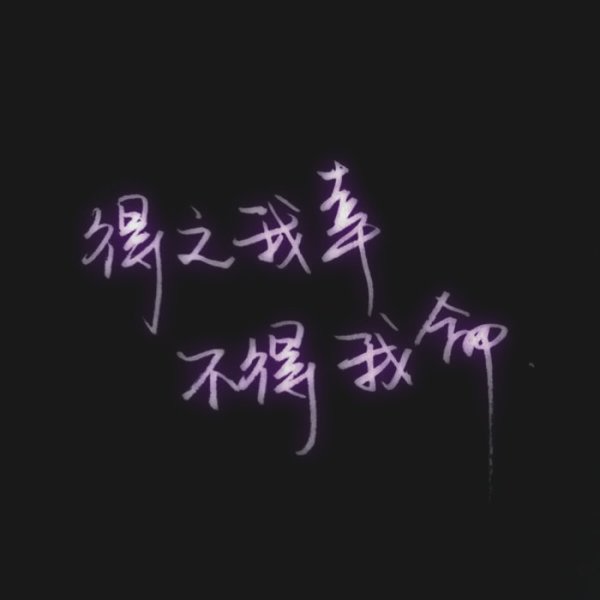 得之我幸
不得我命